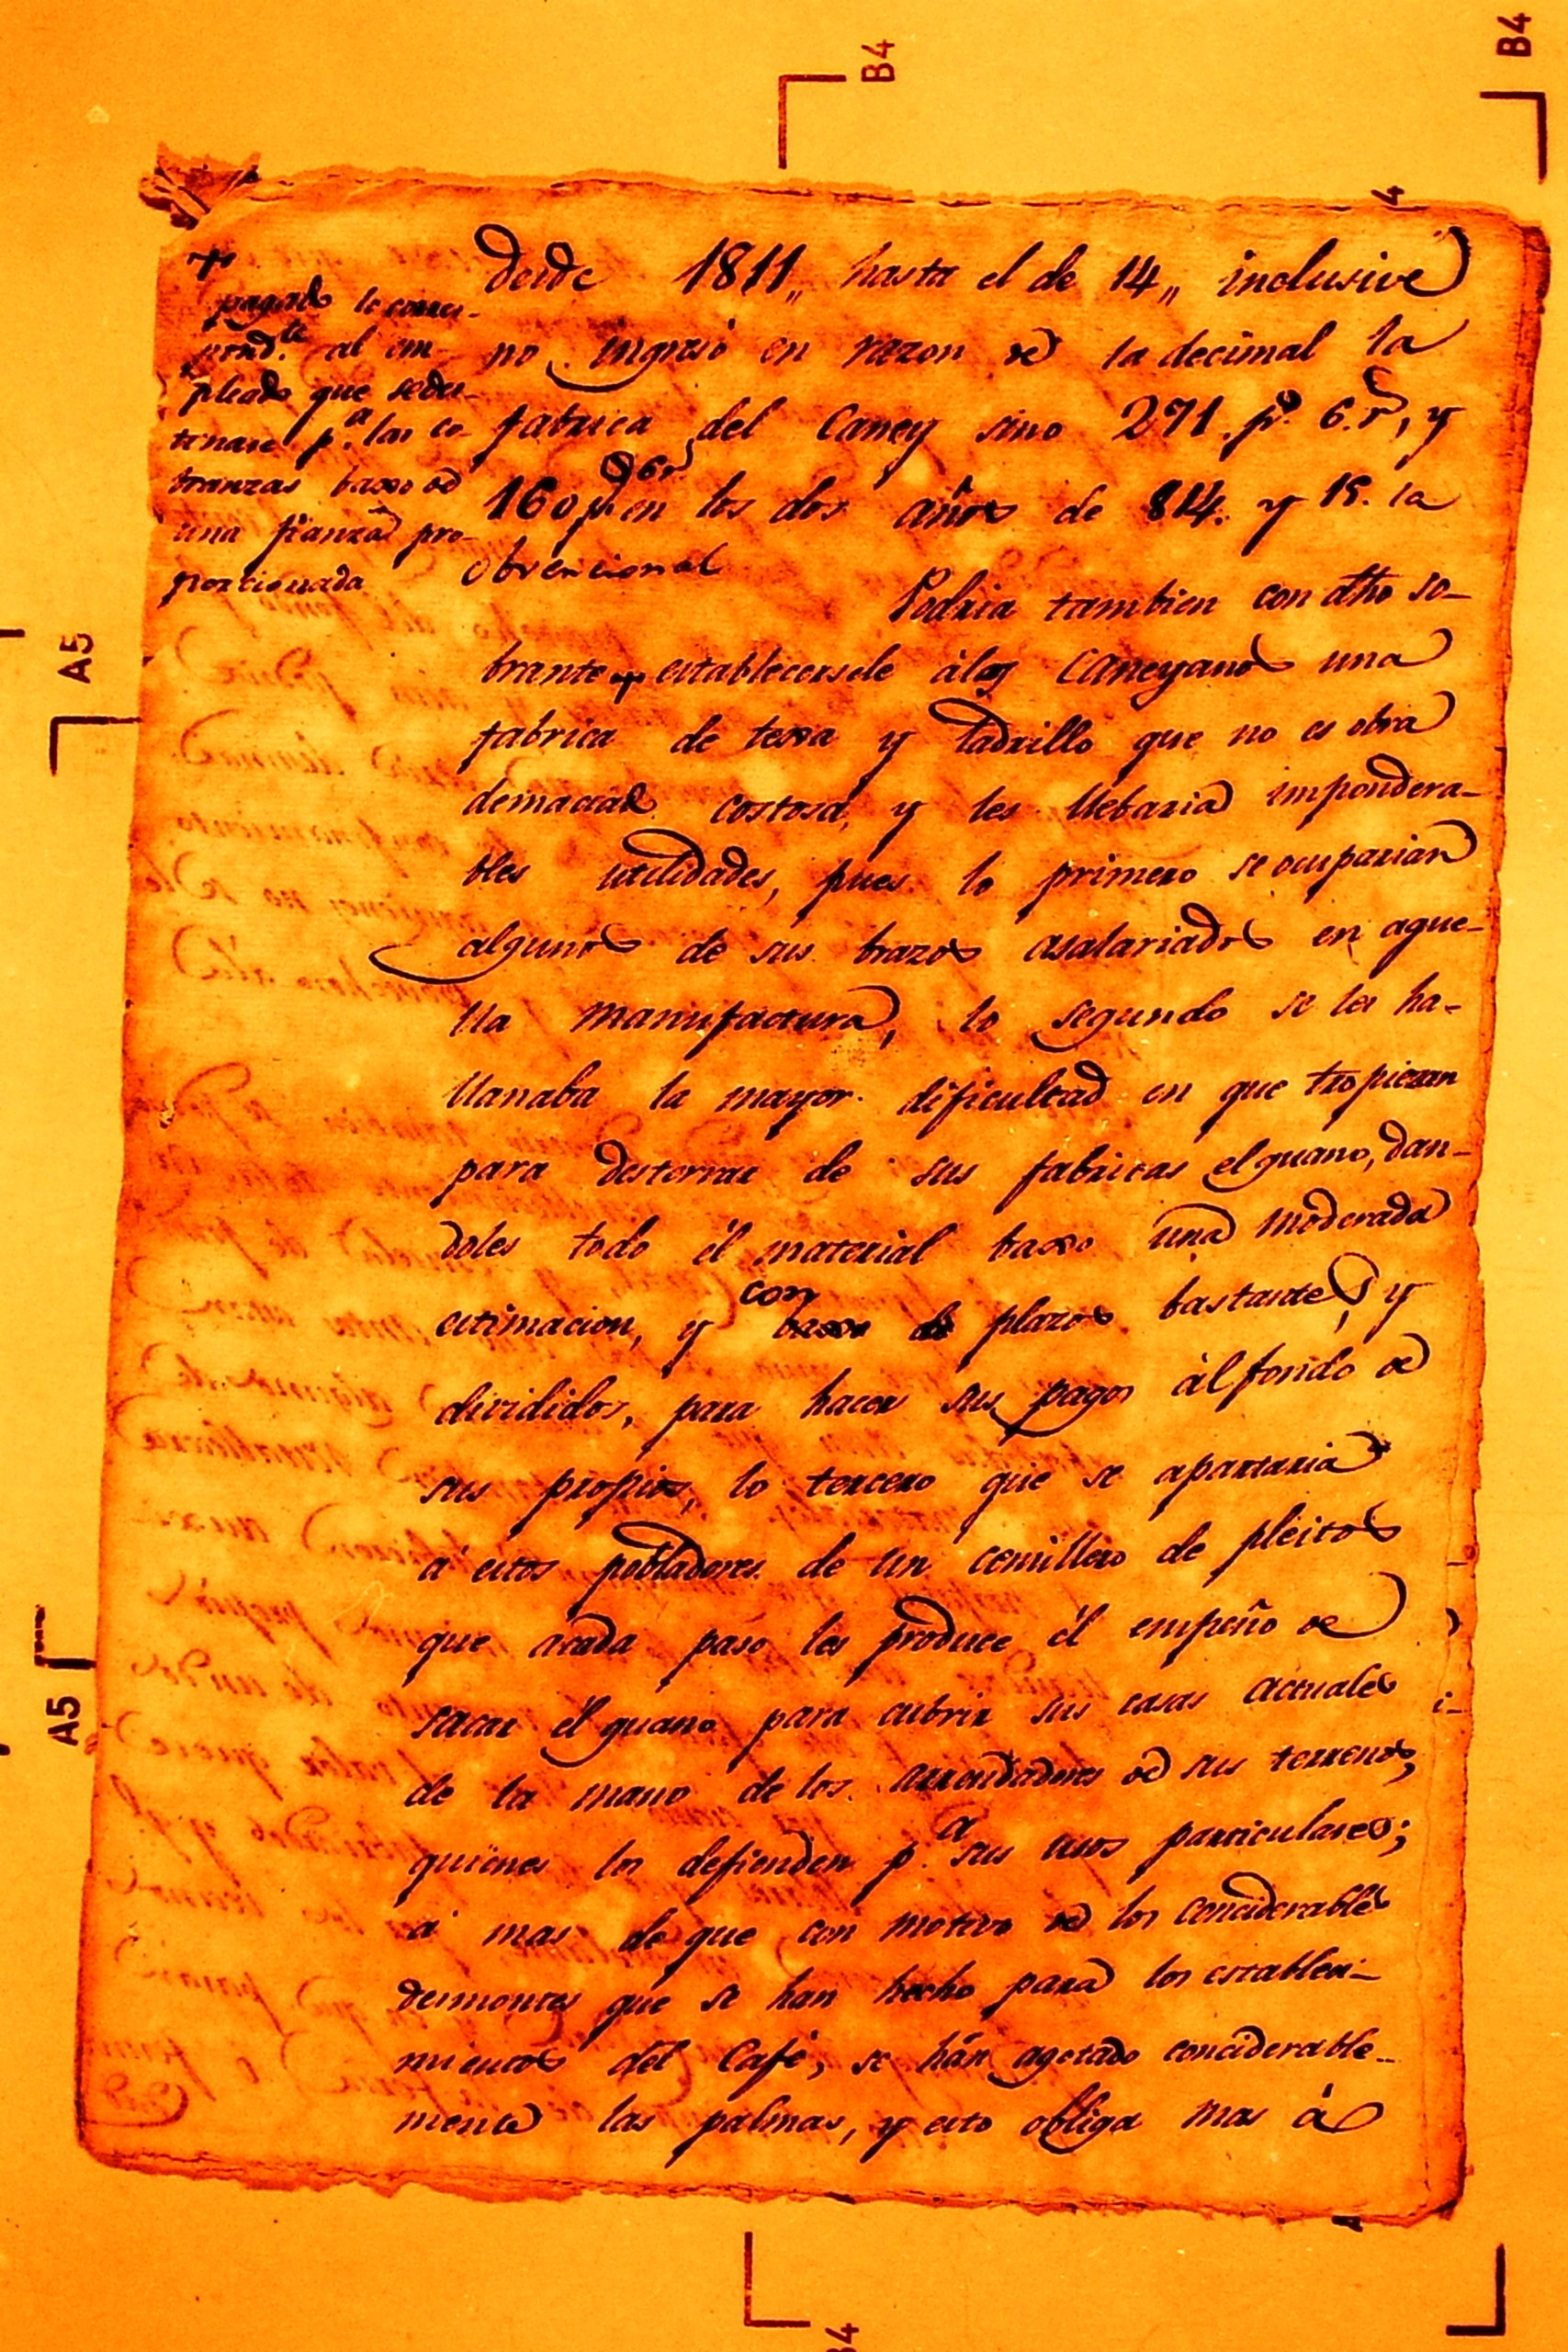 B4
B4
4
+
pagad.º lo corres-
pond.te al em-
pleado que se des-
tinase p.a las co-
branzas baxo de
una fianza pro-
porcionada
desde 1811,, hasta el de 14,, inclusive
no ingresó en razon de la decimal la
fabrica del Caney sino 271. p.s 6. r.s, y
160 p.s 6 r.s en los dos años de 814. y 15. la
Obvencional
Podria tambien con dho so-
brante + establecersele á los Caneyanos una
fabrica de texa y ladrillo que no es obra
demaciad.º costosa, y les llebaria impondera-
bles utilidades, pues lo primero se ocuparian
algunos de sus brazos asalariados en aque-
lla manufactura, lo segundo se les ha-
llanaba la mayor dificultad en que tropiezan
para desterrar de sus fabricas el guano, dan-
doles todo él material baxo una moderada
estimacion, y con plazos bastantes, y
divididos, para hacer sus pagos ál fondo de
sus propios, lo tercero que se apartaria
á estos pobladores de un cemillero de pleitos
que acada paso les produce él empeño de
sacar él guano para cubrir sus casas actuales
de la mano de los arrendadores de sus terrenos,
quienes los defienden p.a sus usos particulares;
á mas de que con motivo de los considerables
desmontes que se han hecho para los estableci-
mientos del Café, se hán agotado conciderable-
mente las palmas, y esto obliga mas á
A5
A5
B4